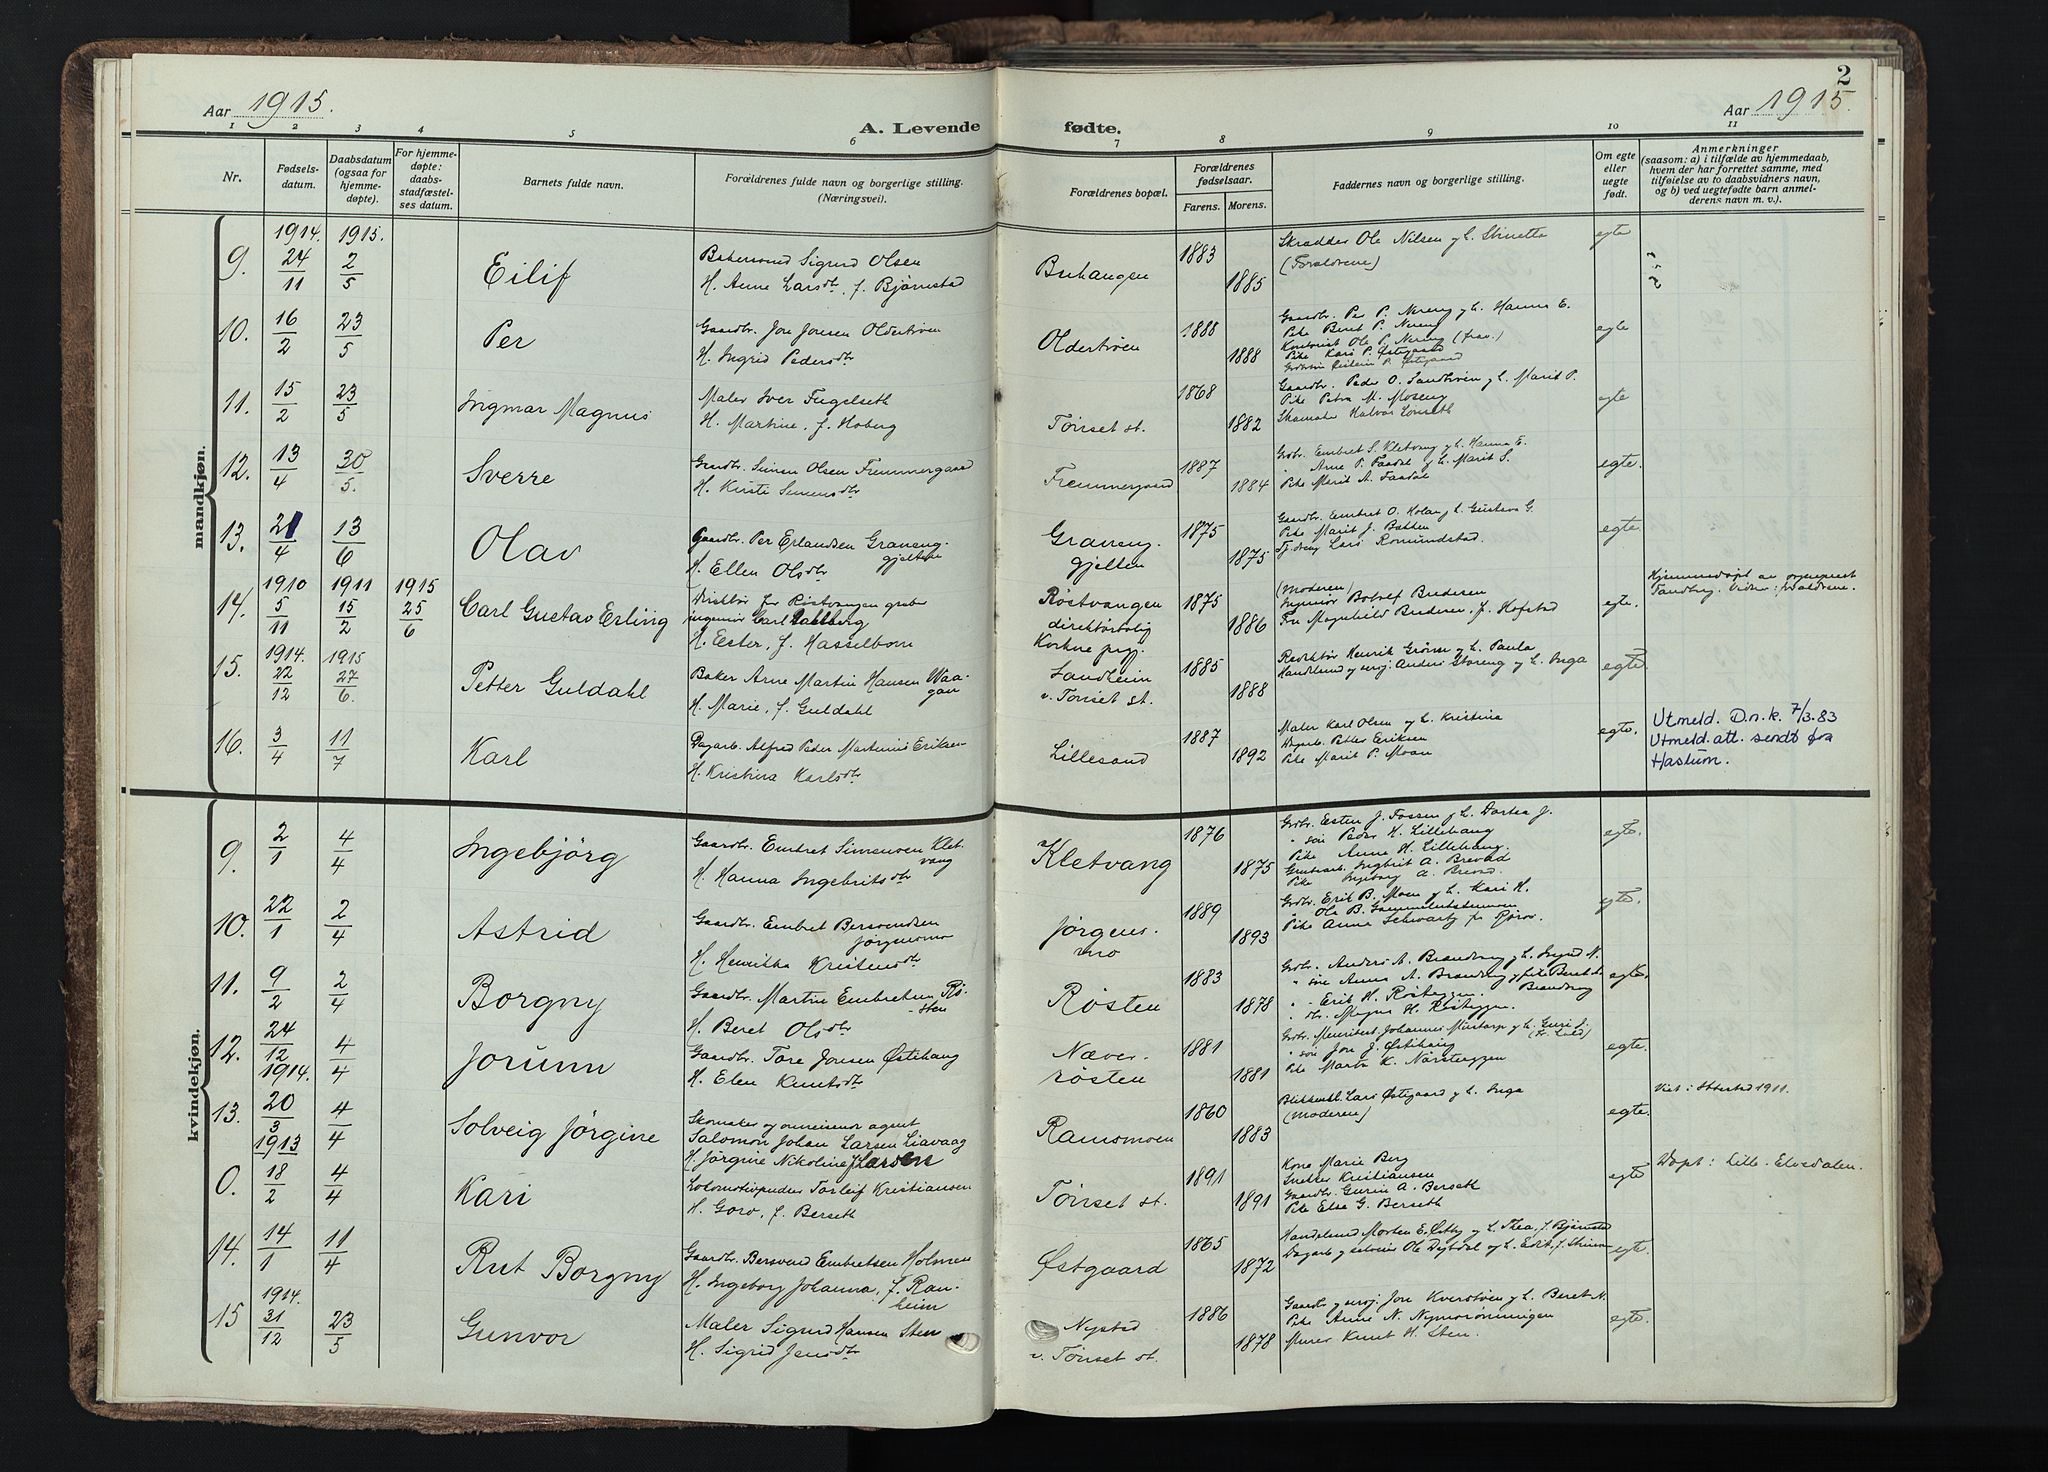 2
Aar 1915.
Aar 1915.
A. Levende fødte.
1 2 3 4 5 6 7 8 9 10 11
Nr.
Fødsels-
datum.
Daabsdatum
(ogsaa for
hjemme-
døpte).
For hjemme-
døpte:
daabs-
stadfæstel-
ses datum.
Barnets fulde navn.
Forældrenes fulde navn og borgerlige stilling.
(Næringsvei).
Forældrenes bopæl.
Forældrenes
fødselsaar.
Farens. Morens.
Faddernes navn og borgerlige stilling.
Om egte
eller
uegte
født.
Anmerkninger
(saasom: a) i tilfælde av hjemmedaab,
hvem der har forrettet samme, med
tilføielse av to daabsvidners navn,
og b) ved uegtefødte barn anmel-
derens navn m. v.).
mandkjøn.
1914. 1915.
9. 24/11 2/5 Eilif
Sigurd Olsen
H. Anne Larsdtr. f. Bjørnstad
Buhaugen 1883 1885
Skrædder Ole Nilsen og h. Strinetta
(Forældrene)
egte
10. 16/2 23/5 Per
Gaardbr. Jon Jonsen Oldertrøen
H. Ingrid Pedersdtr
Oldertrøen 1888 1888
Gaardbr. Per P. Nereng og h. Hanna E.
Pike Beret P. Nereng
Kontorist Ole P. Nereng (frav.)
Pike Kari P. Østgaard
egte
11. 15/2 23/5 Ingmar Magnus
Maler Iver Fugelseth
H. Martine, f. Hoberg
Tønset st. 1868 1882
Gaardbr. Peder O. Sandtrøen og h. Marit P.
Pike Petra M. Moseng
Skomaker Halvor
egte
12. 13/4 30/5. Sverre
Gaardbr. Simen Olsen Fremmergaard
H. Kirsti Simensdtr
Fremmergaard 1887 1884
Grdbr. Embret S. Kletvang og h. Hanna E.
" Arne P. Faadal og h. Marit S.
Pike Marit A. Faadal
egte.
13. 21/4 13/6 Olav
Gaardbr. Per Erlandsen Graneng-
gjelten
H. Ellen Olsdtr
Graneng-
gjelten 1875 1875
Gaardbr. Embret O. Holen og h. Gustava G.
Pike Marit J. Bakken
Tj.dreng Lars Romundstad.
egte.
1910 1911 1915
14. 5/11 15/2 25/6 Carl Gustav Erling
Direktør for Røstvangen gruber
ingeniør Carl
H. Ester, f. Hasselbom
Røstvangen
direktørbolig
1875 1886
(Moderen)
Ingeniør Botolf Bredesen
Fru Magnhild Bredesen, f. Hofstad
egte.
Hjemmedøpt av sogneprest
Tandberg. Vidner: forældrene.
1914. 1915
15. 22/12 27/6. Petter Guldahl
Baker Arne Martin Hansen Waa-
gan
H. Marie, f. Guldahl
Sandheim
v. Tønset st. 1885 1888
Redaktør Henrik Grønn og h. Paula
Handelsmd og Anders Storeng og h. Inga
egte.
16. 3/4 11/7 Karl
Dagarb. Alfred Peder Martinius Eriksen
H. Kristina Karlsdtr
Lillesand 1887 1892
Maler Karl Olsen og h. Kristina
Dagarb. Petter Eriksen
Pike Marit P. Moan
egte.
Utmeld. D.n.k. 7/3.83
Utmeld.att. sendt fra
Hastum.
kvindekjøn.
9. 2/1 4/4 Ingebjörg
Gaardbr. Embret Simensen Klet-
vang
H. Hanna Ingebritsdtr
Kletvang 1876 1875
Grdbr. Esten J. Fossen og h. Dortea J.
" søn Peder H. Lillehaug
Pike Anne H. Lillehaug.
Gruvearb. Ingbrit A. Brevad
Pike Ingeborg A. Brevad.
egte.
10. 22/1 2/4 Astrid
Gaardbr. Embret Bersvendsen
Jørgensmo
H. Henrikka Kristensdtr
Jørgens-
mo 1889 1893
Grdbr. Erik B. Moen og h. Kari H.
" Ola B. Gammelstuemoen
Pike Anna Schwartz fra Røros.
egte.
11. 9/2 2/4 Borgny
Gaardbr. Martin Embretsen Rø-
sten
H. Beret Olsdtr
Røsten 1883 1878
Grdbr. Anders A. Brandvang og h. Ingrid N.
" søn Arnt A. Brandvang og pike Beret
Brandvang
" " Erik H. Røsteggen.
" dtr. Magna H. Røsteggen.
egte.
12. 24/12 1914. 4/4 Jorunn
Gaardbr. Tore Jonsen Østihaug
H. Elen Knutsdtr
Næver-
røsten 1881 1881
Grdbr. Johannes og h. Guri S.
" søn Jon J. Østihaug
Pike Marta K. Nørsteeggen
egte.
13. 20/3 1913 4/4 Solveig Jörgine
Skomaker og annoncenar agent
Salomon Johan Larsen Liavaag
H. Jørgine Nikoline f. Larsen
Ramsmoen 1860 1883
Blikkensl. Lars Østgaard og h. Inga
(Moderen)
egte.
Viet i 1911.
0. 18/2 4/4 Kari
Lokomotivpudser Torleif Kristiansen
H. Goro, f. Berseth
Tønset st. 1891 1891
Kone Marie Berg
Snekker Kristiansen
Gaardbr. Gurin A. Berseth
Pike Else G. Berseth
egte
Døpt i Lille-Elvedalen.
14. 14/1 11/4 Rut Borgny
Gaardbr. Bersvend Embretsen Holmen
H. Ingeborg Johanna, f. Ran-
heim
Østgaard 1865 1872
Handelsmd Morten E. Østby og h. Thea, f. Bjørnstad
Dagarb. og Ole Dybdal og h. Edit, f.
egte.
1914.
15 31/12 23/5 Gunvor
Maler Sigurd Hansen Sten
H. Sigrid Jensdtr
Nystad
v. Tønset st. 1886 1878
Gaardbr. og Jon Kverstøen og h. Beret N.
Pike Anne N. Nymorønningen
Murer Knut H. Sten.
egte.